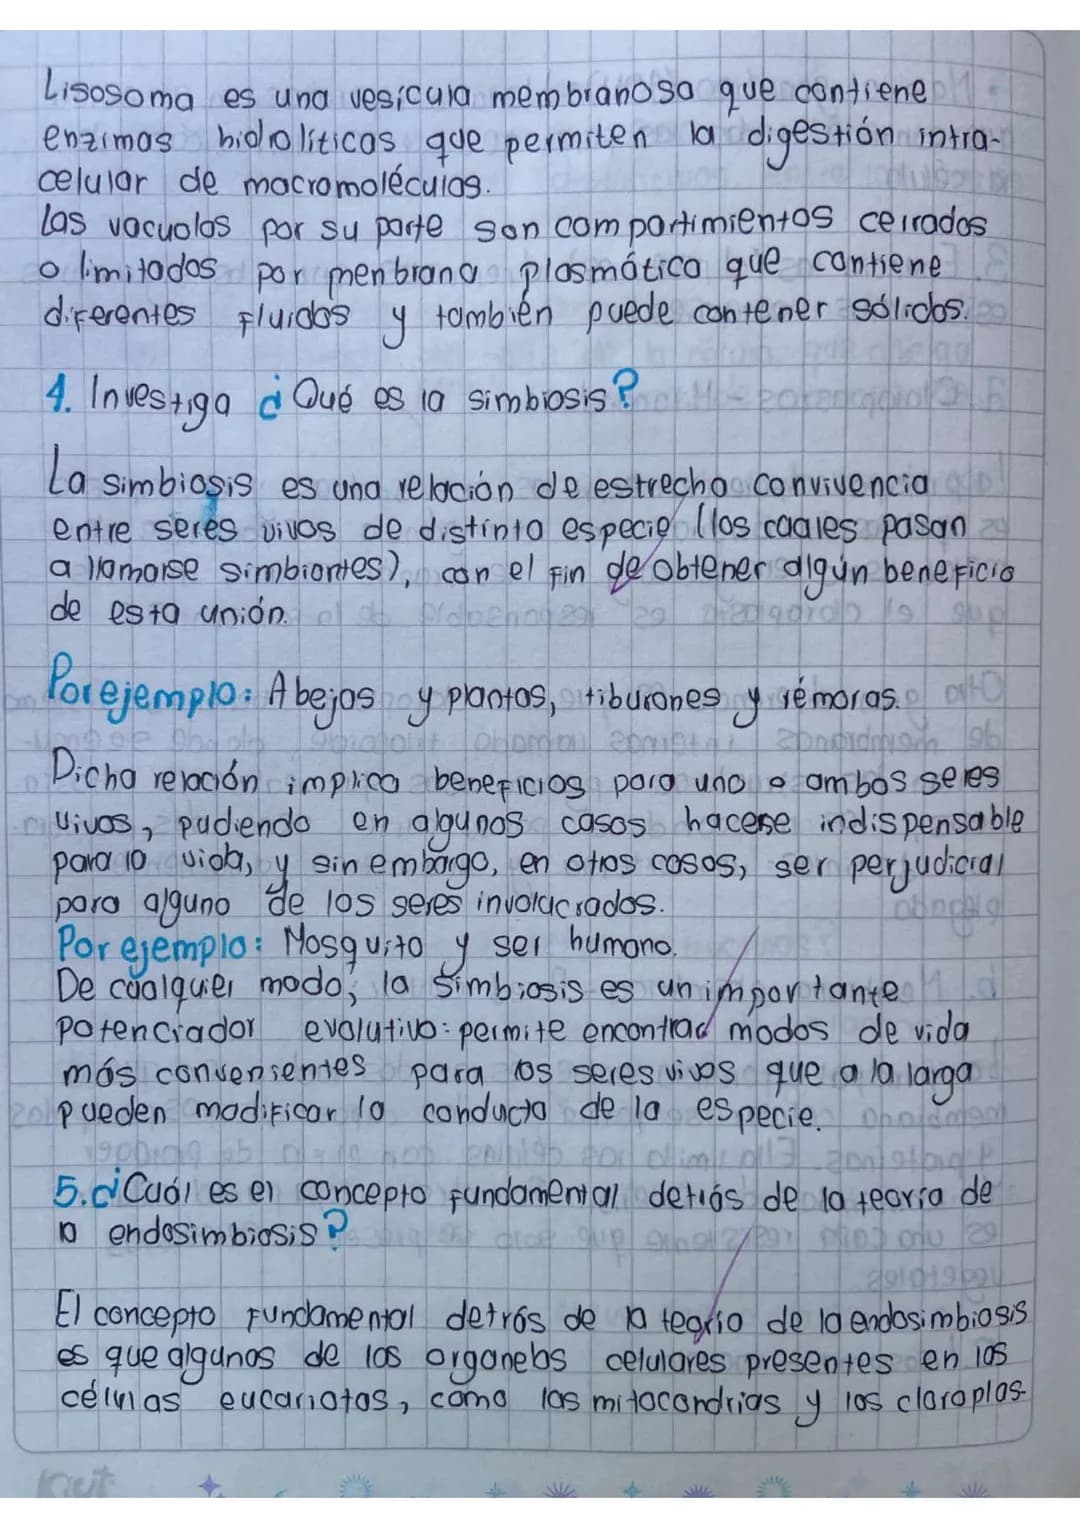 Lisosoma es una vesícula membranosa que contiene
enzimas hidrolíticas que permiten la digestión intra-
celular de macromoléculas.
Las vacuolas por su parte son compartimientos cerrados
o limitados por menbrana plasmática que contiene
diferentes fluidos y también puede contener sólidos.
4. Investiga ¿Qué es la simbiosis?
La simbiosis es una relación de estrecha convivencia
entre seres vivos de distinta especie (los cuales pasan
a llamarse simbiontes), con el fin de obtener algún beneficio
de esta unión.
Por ejemplo: Abejas y plantas, tiburones y rémoras.
Dicha relación implica beneficios para uno o ambos seres
vivos, pudiendo en algunos casos hacerse indispensable
para la vida, y sin embargo, en otros casos, ser perjudicial
para alguno de los seres involucrados.
Por ejemplo: Mosquito y ser humano.
De cualquier modo, la simbiosis es un importante
potenciador evolutivo: permite encontrar modos de vida
más convenientes para los seres vivos que a la larga
pueden modificar la conducta de la especie.
5. ¿Cuál es el concepto fundamental detrás de la teoría de
la endosimbiosis?
El concepto fundamental detrás de la teoría de la endosimbiosis
es que algunos de los organelos celulares presentes en las
células eucariotas, como las mitocondrias y los cloroplas-